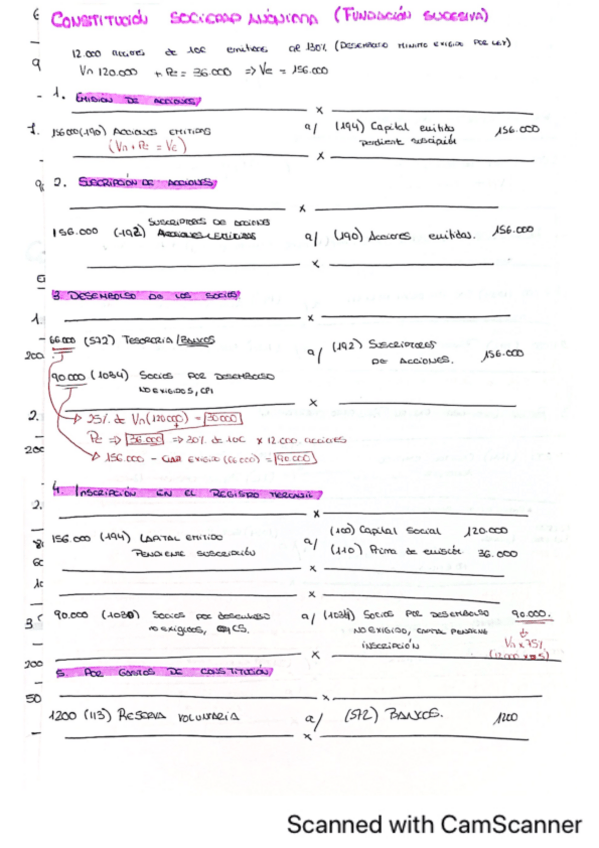 CONSTITUCIÓN SOCIEDAD ANÓNIMA (FUNDACIÓN SUCESIVA)
12.000 acciones de 10€ emitidas al 130% (DESEMBOLSO MÍNIMO EXIGIDO POR LEY)
Vn 120.000 + Pe = 36.000 => Ve = 156.000
1. EMISIÓN DE ACCIONES
x
156.000 (190) ACCIONES EMITIDAS a/ (194) Capital emitido 156.000
(Vn + Pe = Ve) pendiente suscripción
x
2. SUSCRIPCIÓN DE ACCIONES
x
SUSCRIPTORES DE ACCIONES
156.000 (192) ACCIONES EMITIDAS a/ (190) Acciones emitidas. 156.000
x
3. DESEMBOLSO DE LOS SOCIOS
x
66.000 (572) TESORERÍA/BANCOS a/ (192) SUSCRIPTORES 156.000
DE ACCIONES.
90.000 (1034) SOCIOS POR DESEMBOLSO
NO EXIGIDOS, CPI
x
25% de Vn (120.000) = 30.000
+
Pe => 36.000 => 30% de 10€ x 12.000 acciones
156.000 - (66.000) = 90.000
4. INSCRIPCIÓN EN EL REGISTRO MERCANTIL
x
156.000 (194) CAPITAL EMITIDO a/ (100) Capital Social 120.000
PENDIENTE SUSCRIPCIÓN (110) Prima de emisión 36.000
x
x
90.000 (1030) Socios por desembolso a/ (1034) SOCIOS POR DESEMBOLSO 90.000.
no exigidos, CS. NO EXIGIDO, CAPITAL PENDIENTE
INSCRIPCIÓN Vn x 75%
x
5. POR GASTOS DE CONSTITUCIÓN
x
1200 (113) RESERVA VOLUNTARIA a/ (572) BANCOS. 1200
x
Scanned with CamScanner